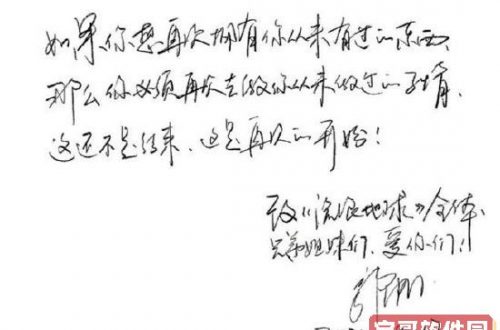 如果你想再次拥有你从未有过的东西
那么你必须再次去做你从未做过的事情
这还不是结束,这是再次的开始!
致《流浪地球》全体
兄弟姐妹们,爱你们!
郭帆